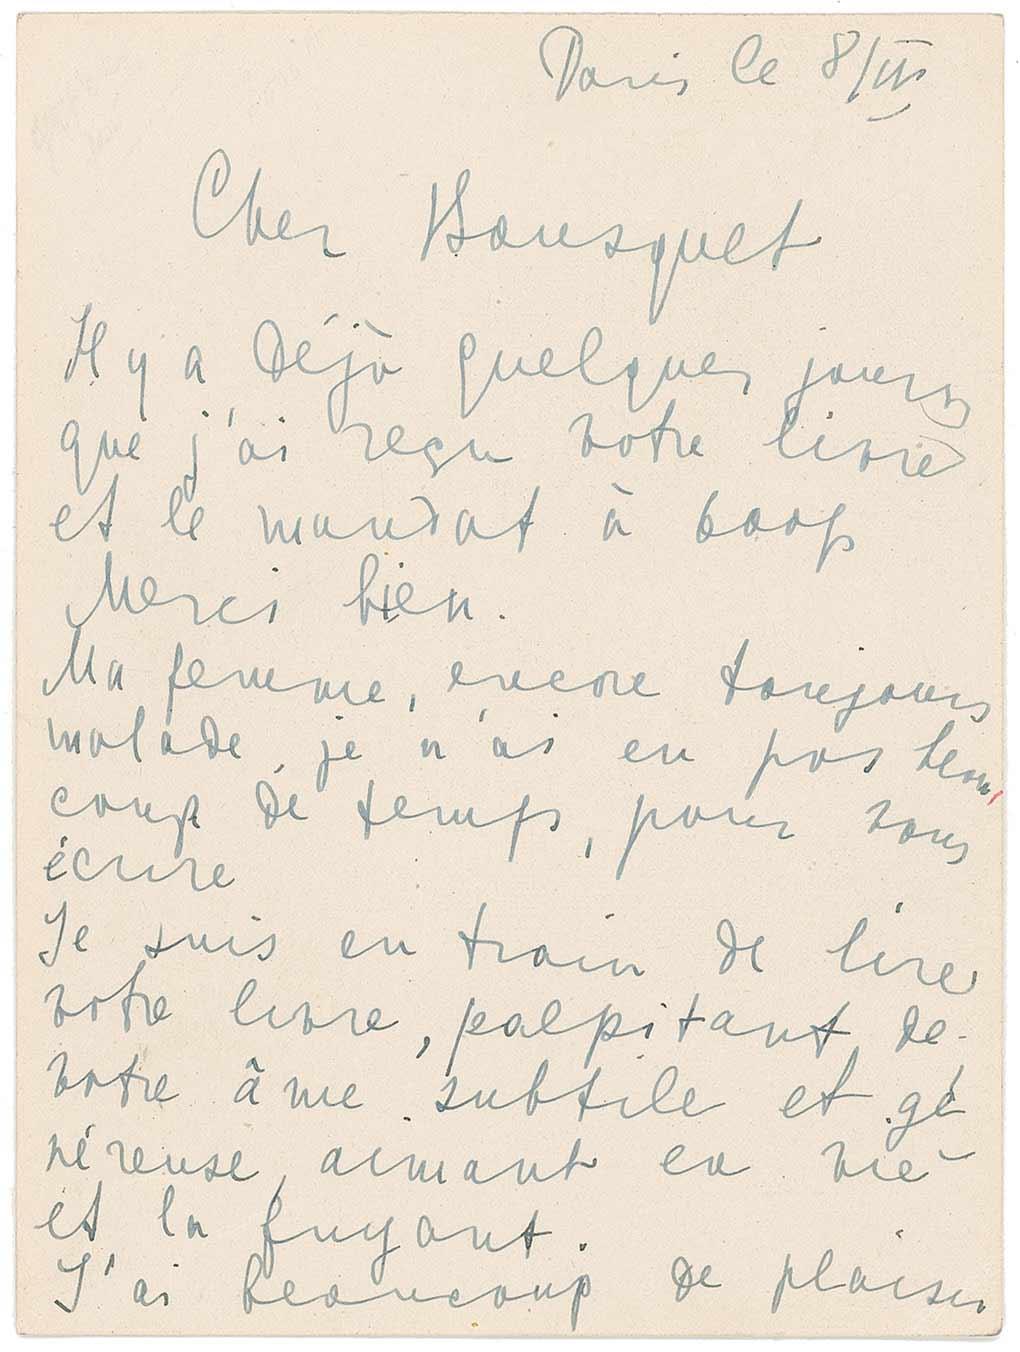 Paris le 8/III
Cher Bousquet
Il y a déjà quelques jours
que j'ai reçu votre livre
et le mandat à 600 fs
Merci bien.
Ma femme, encore toujours
malade, je n'ai eu pas beau-
coup de temps, pour vous
écrire
Je suis en train de lire
votre livre, palpitant de
votre âme subtile et gé
néreuse, aimant la vie
et la fuyant.
J'ai beaucoup de plaisir